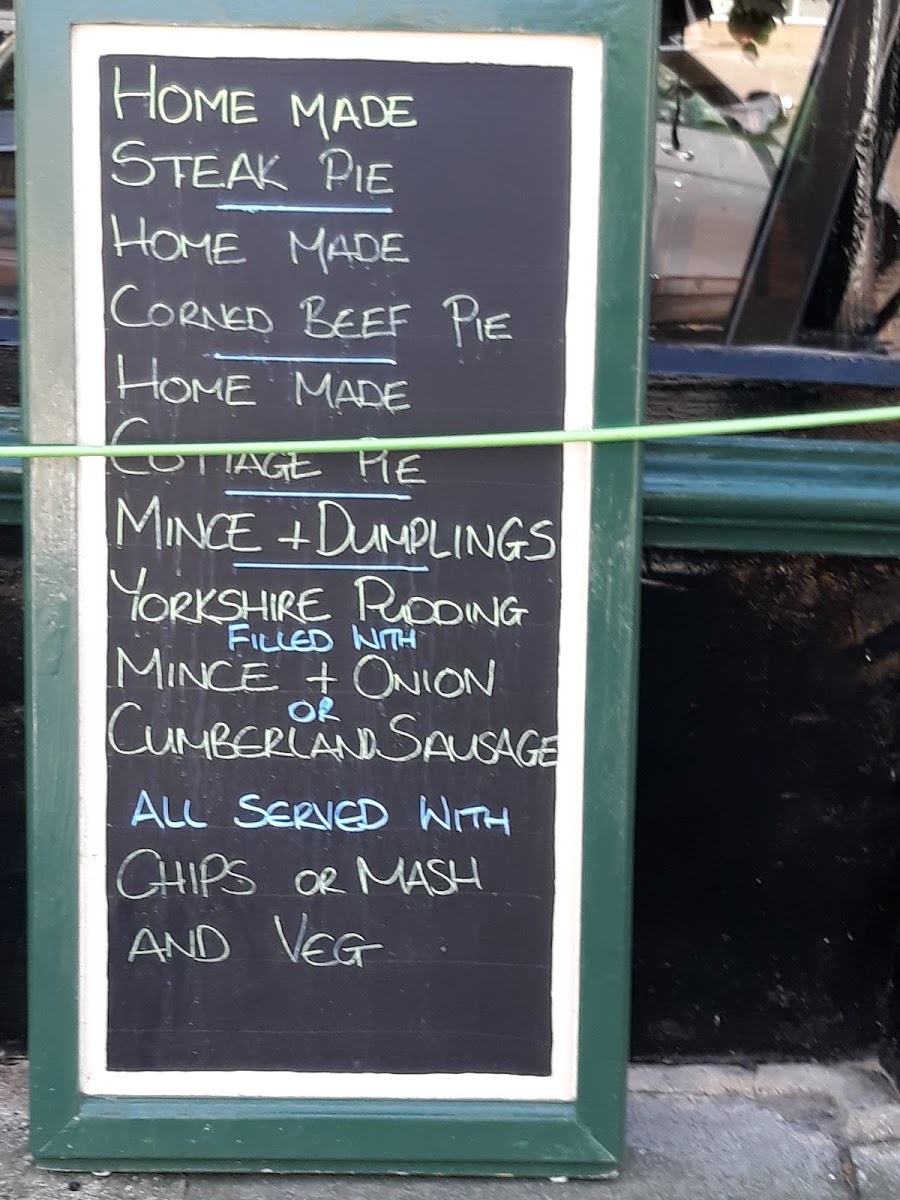 HOME MADE
STEAK PIE
HOME MADE
CORNED BEEF PIE
HOME MADE
COTTAGE PIE
MINCE + DUMPLINGS
YORKSHIRE PUDDING
FILLED WITH
MINCE + ONION
OR
CUMBERLAND SAUSAGE
ALL SERVED WITH
CHIPS OR MASH
AND VEG